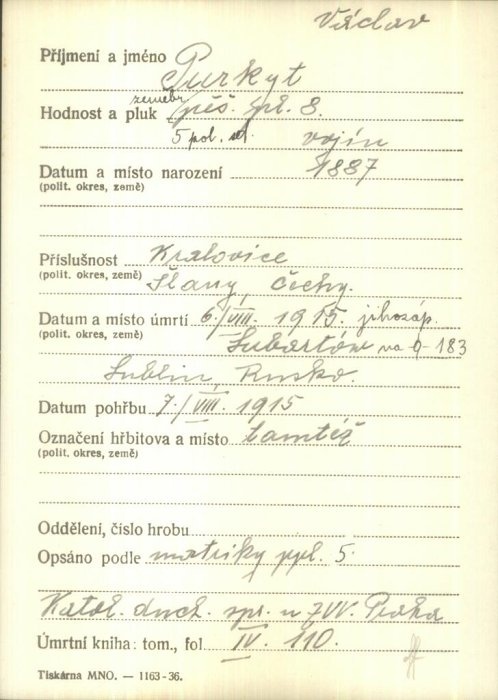 Václav
Příjmení a jméno Purkyt
zeměbr.
Hodnost a pluk pěš. pl. 8.
5 pol. vojín
Datum a místo narození 1887
(polit. okres, země)
Příslušnost Kralovice
(polit. okres, země) Slaný Čechy.
Datum a místo úmrtí 6./VIII. 1915. jihozáp.
(polit. okres, země) Lubartów na 183
Lublin, Rusko.
Datum pohřbu 7./VIII. 1915
Označení hřbitova a místo tamtéž
(polit. okres, země)
Oddělení, číslo hrobu
Opsáno podle matriky ppl. 5.
Katol. duch. spr. u ZVV. Praha
Úmrtní kniha: tom., fol IV. 110.
Tiskárna MNO. — 1163-36.